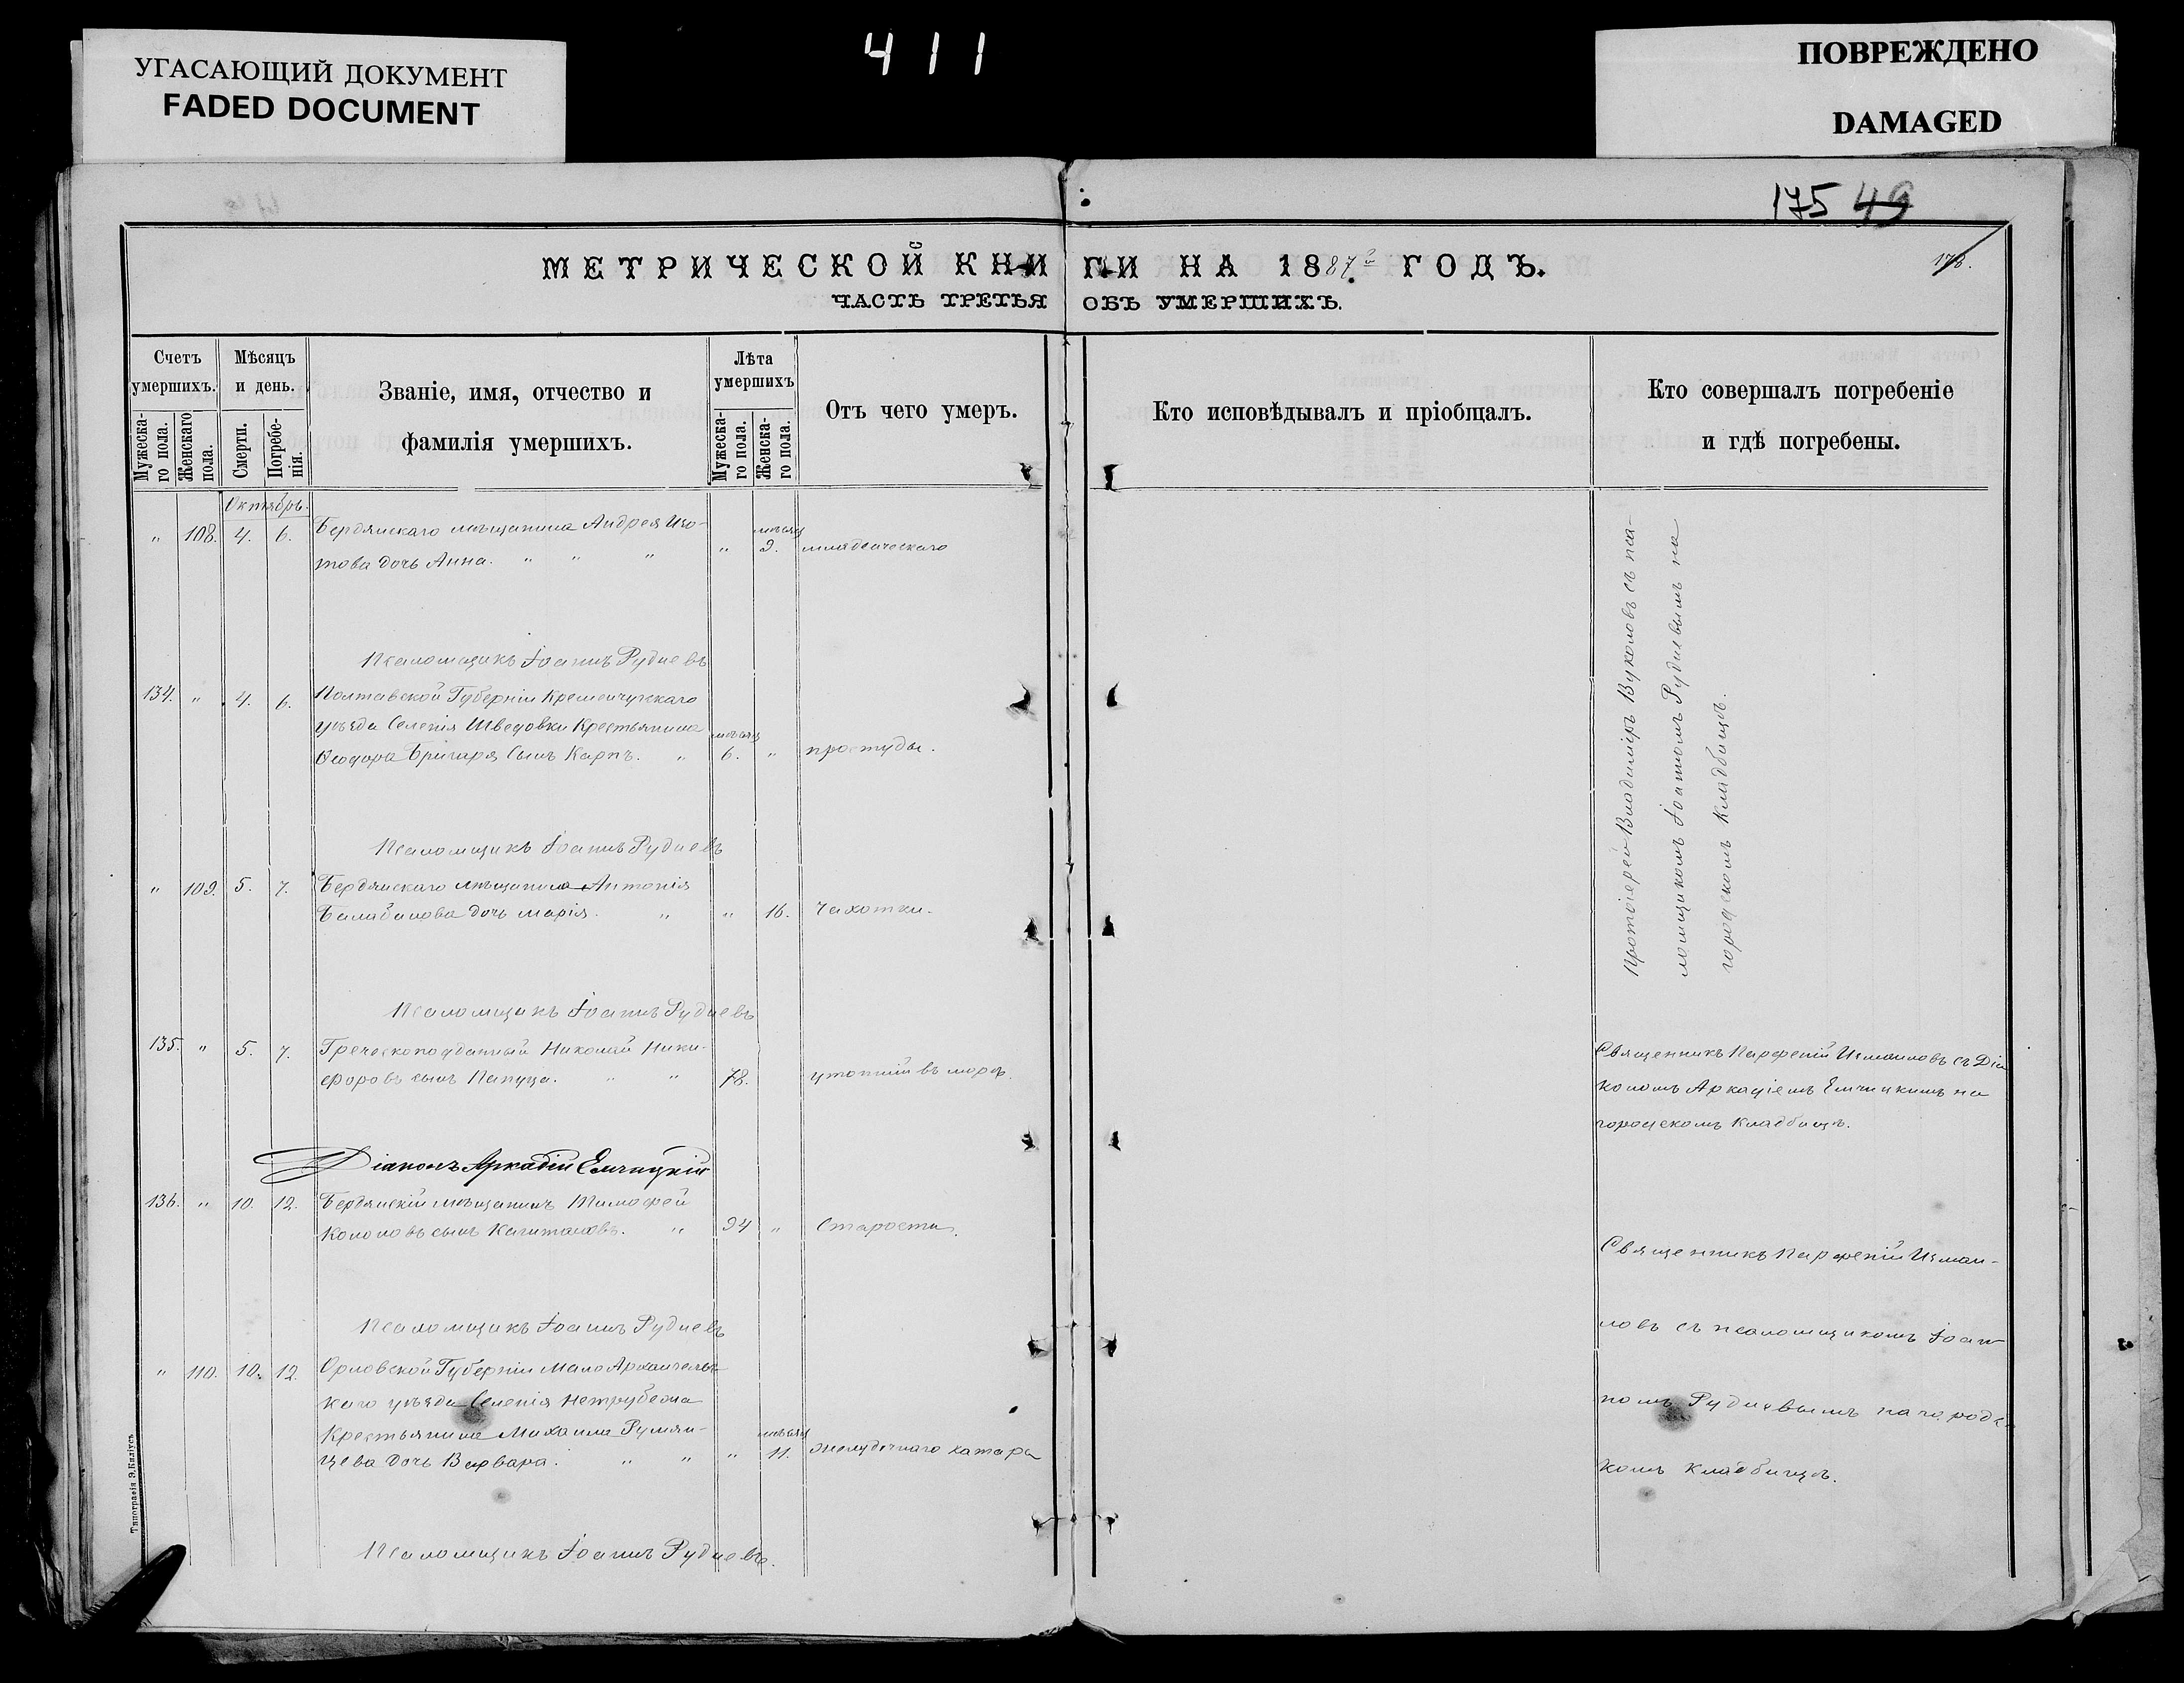 УГАСАЮЩИЙ ДОКУМЕНТ
FADED DOCUMENT
411
ПОВРЕЖДЕНО
DAMAGED
175 49
МЕТРИЧЕСКОЙ КНИГИ НА 1887 ГОДЪ.
ЧАСТЬ ТРЕТЬЯ ОБЪ УМЕРШИХЪ.
Счетъ умершихъ.
Мужескаго пола.
Женскаго пола.
Мѣсяцъ и день.
Смерти.
Погребенія.
Званіе, имя, отчество и
фамилія умершихъ.
Лѣта умершихъ
Мужескаго пола.
Женскаго пола.
Отъ чего умеръ.
Кто исповѣдывалъ и пріобщалъ.
Кто совершалъ погребеніе
и гдѣ погребены.
Октябрь.
" 108. 4. 6. Бердянскаго мѣщанина Андрея Изо-
това дочь Анна. " " " " мѣсяц 9. младенческаго
Псаломщикъ Іоаннъ Рудневъ
134. " 4. 6. Полтавской Губерніи Кременчугскаго
уѣзда Селенія Шведовки Крестьянина
Ѳеодора Бригаря сынъ Карпъ. " мѣсяц 6. " простуды.
Псаломщикъ Іоаннъ Рудневъ
" 109. 5. 7. Бердянскаго мѣщанина Антонія
Балабанова дочь Марія. " " 16. Чахотки.
Псаломщикъ Іоаннъ Рудневъ
Протоіерей Владиміръ Вуколовъ съ пса-
ломщикомъ Іоанномъ Рудневымъ на
городскомъ кладбищѣ.
135. " 5. 7. Греческоподданный Николай Ники-
форовъ сынъ Папуца. " " 78. утопшій въ морѣ.
Священникъ Парфеній Измаиловъ съ Діа
кономъ Аркадіемъ Емчицкимъ на
городскомъ кладбищѣ.
Діаконъ Аркадій Емчицкій
136. " 10. 12. Бердянскій мѣщанинъ Тимофей
Кононовъ сынъ Капитановъ. " 94 " Старости.
Псаломщикъ Іоаннъ Рудневъ
" 110. 10. 12. Орловской Губерніи Мало Архангельс-
каго уѣзда Селенія Нетрубежа
Крестьянина Михаила Румян-
цева дочь Варвара. " " " мѣсяц 11. желудочнаго катара
Священникъ Парфеній Измаи-
ловъ съ псаломщикомъ Іоан-
номъ Рудневымъ на городс-
комъ кладбищѣ.
Псаломщикъ Іоаннъ Рудневъ.
Типографія Э. Киліусъ